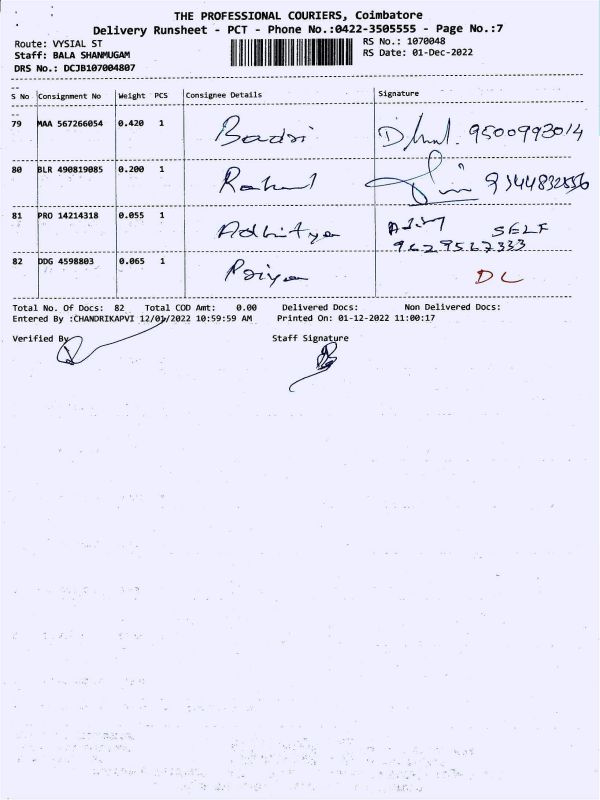 THE PROFESSIONAL COURIERS, Coimbatore
Delivery Runsheet - PCT - Phone No.:0422-3505555 - Page No.:7
Route: VYSIAL ST
Staff: BALA SHANMUGAM
DRS No.: DCJB107004807
RS No.: 1070048
RS Date: 01-Dec-2022
S No Consignment No Weight PCS Consignee Details Signature
79 MAA 567266054 0.420 1 Badri 9500993014
80 BLR 490819085 0.200 1 Rahul 9344832556
81 PRO 14214318 0.055 1 Adhitya SELF
9629567333
82 DDG 4598803 0.065 1 Priya DL
Total No. Of Docs: 82 Total COD Amt: 0.00 Delivered Docs: Non Delivered Docs:
Entered By :CHANDRIKAPVI 12/01/2022 10:59:59 AM Printed On: 01-12-2022 11:00:17
Verified By Staff Signature